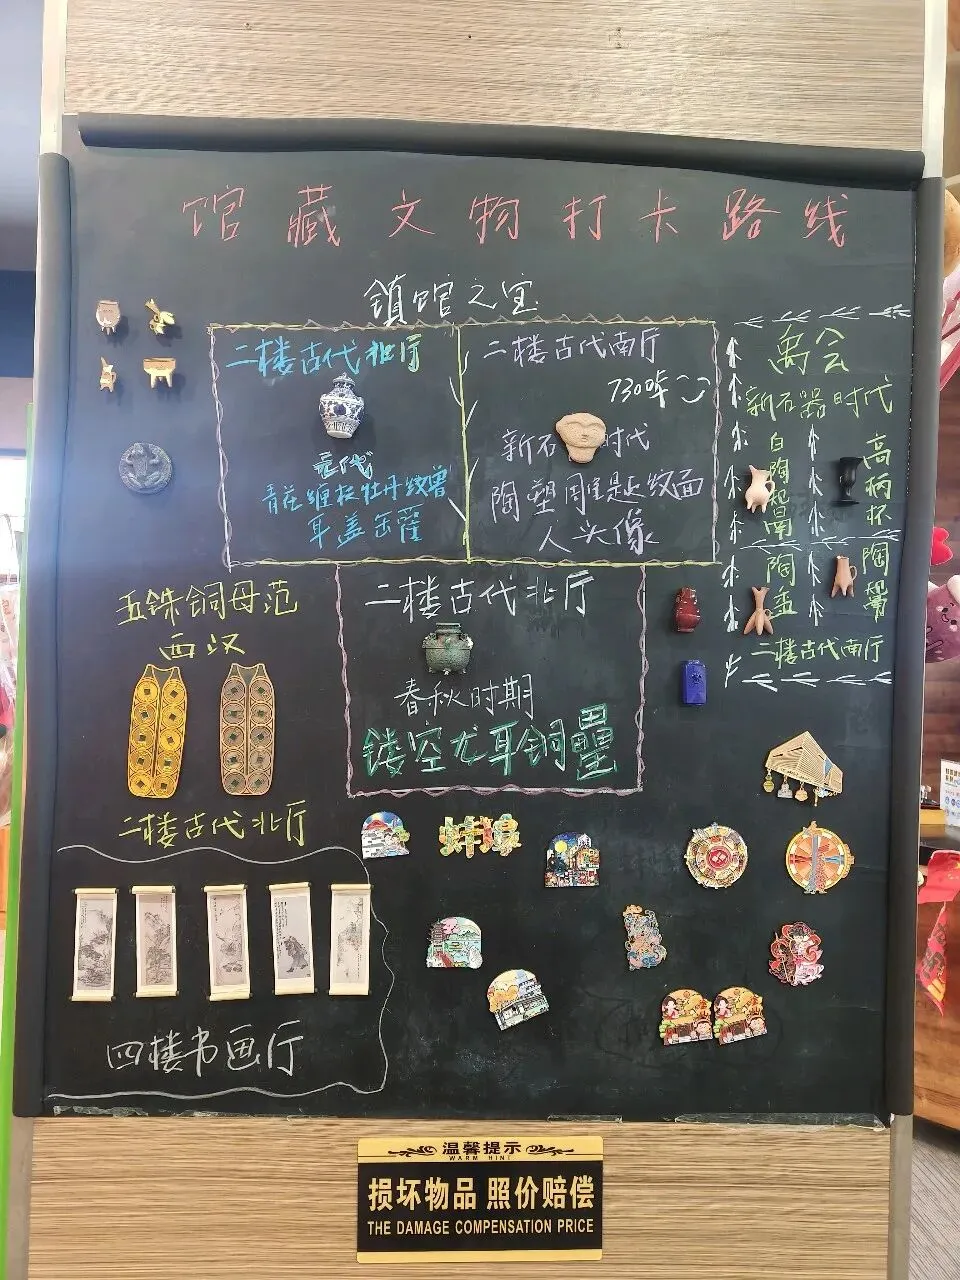 馆藏文物打卡路线
镇馆之宝
二楼古代北厅
元代
青花缠枝牡丹纹兽
耳盖罐
二楼古代南厅
7300年
新石 时代
陶塑 纹面
人头像
禹会
新石器时代
白陶鬶
高柄杯
陶盉
陶鬶
二楼古代南厅
二楼古代北厅
春秋时期
镂空龙耳铜罍
五铢铜母范
西汉
二楼古代北厅
蚌埠
四楼书画厅
温馨提示
WARM HINT
损坏物品 照价赔偿
THE DAMAGE COMPENSATION PRICE